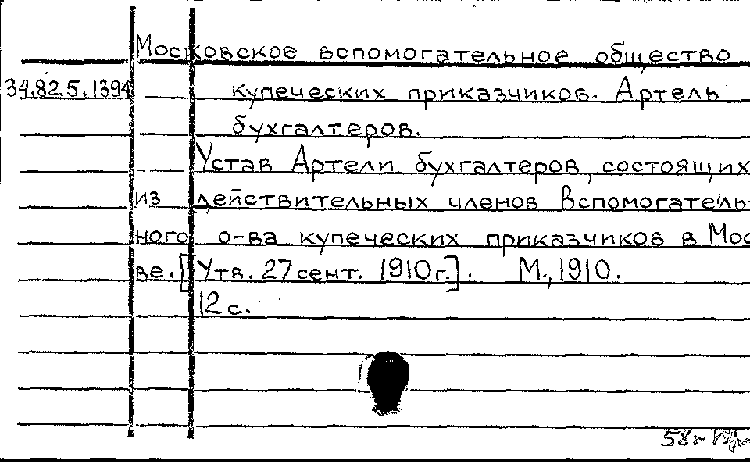 Московское вспомогательное общество
34.82.5.1394 купеческих приказчиков. Артель
бухгалтеров.
Устав Артели бухгалтеров, состоящих
из действительных членов Вспомогатель-
ного о-ва купеческих приказчиков в Мос
ве. [Утв. 27 сент. 1910 г.]. М., 1910.
12 с.
58г